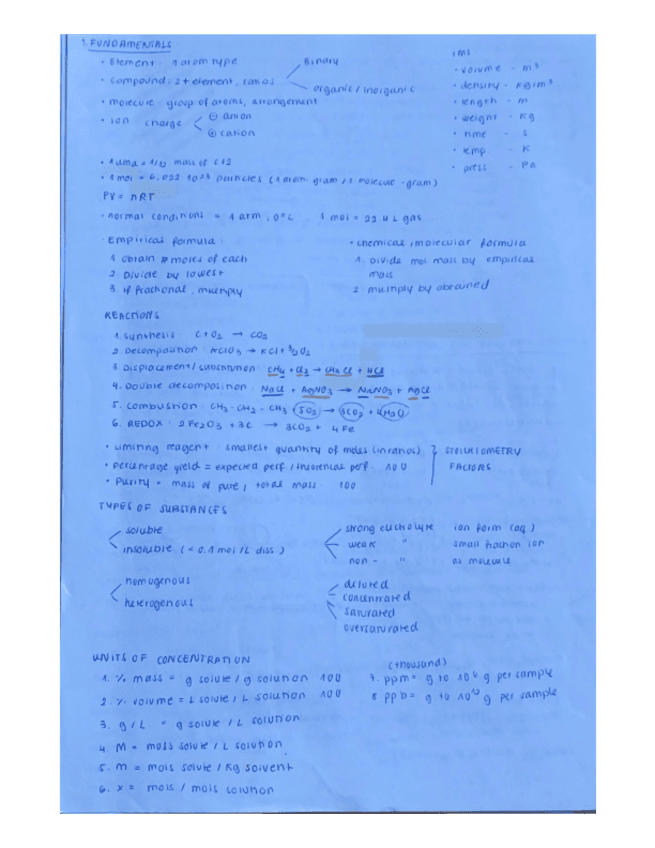 1. FUNDAMENTALS
• Element: 1 atom type
• compound: 2+ element, ratios
Binary
organic / inorganic
• molecule: group of atoms, arrangement
• Ion charge
⊖ anion
⊕ cation
• volume - m³
• density - kg/m³
• length - m
• weight - kg
• time - s
• temp - K
• press - Pa
• 1 uma = 1/12 mass of C12
• 1 mol = 6.022 10²³ particles (1 atom-gram / 1 molecule-gram)
PV = nRT
• normal conditions = 1 atm, 0ºC 1 mol = 22'4 L gas
• Empirical formula:
1. obtain # moles of each
2. Divide by lowest
3. if fractional, multiply
• chemical / molecular formula
1. Divide mol mass by empirical mass
2. multiply by obtained
REACTIONS
1. synthesis C + O₂ → CO₂
2. Decomposition: KClO₃ → KCl + 3/2 O₂
3. Displacement / substitution: CH₄ + Cl₂ → CH₃Cl + HCl
4. Double decomposition: NaCl + AgNO₃ → NaNO₃ + AgCl
5. Combustion: CH₃-CH₂-CH₃ + 5O₂ → 3CO₂ + 4H₂O
6. REDOX: 2Fe₂O₃ + 3C → 3CO₂ + 4Fe
• Limiting reagent: smallest quantity of moles (in ratios)
• percentage yield = expected perf / theoretical perf. 100
• Purity = mass of pure / total mass 100
STOICHIOMETRY
FACTORS
TYPES OF SUBSTANCES
soluble
insoluble (< 0.1 mol/L diss)
strong electrolyte: ion form (aq)
weak " small fraction ion
non - " as molecule
homogenous
heterogenous
diluted
concentrated
saturated
oversaturated
UNITS OF CONCENTRATION
1. % mass = g solute / g solution 100
2. % volume = L solute / L solution 100
3. g/L = g solute / L solution
4. M = mols solute / L solution
5. m = mols solute / kg solvent
6. x = mols / mols solution
(thousand)
7. ppm = g to 10⁶ g per sample
8. ppb = g to g per sample